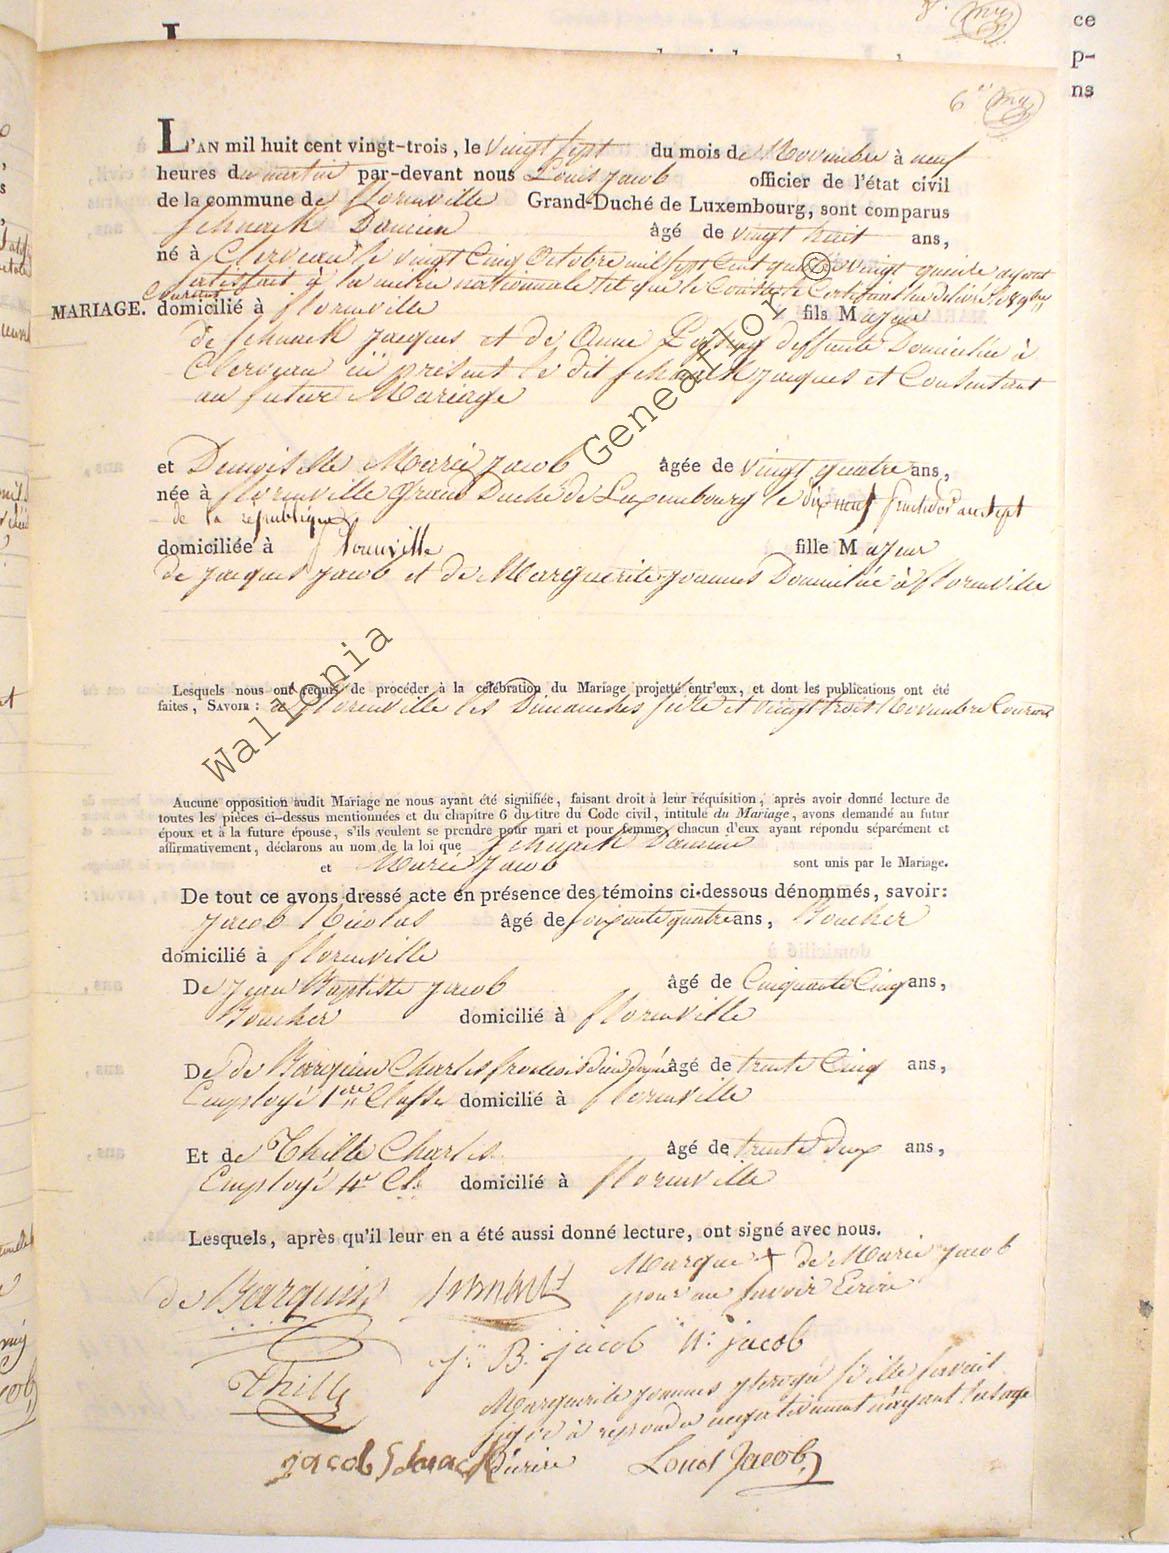 ce
p-
ns
6e
L'AN mil huit cent vingt-trois, le vingt sept du mois de Novembre à neuf
heures du matin par-devant nous Louis Jacob officier de l'état civil
de la commune de florenville Grand-Duché de Luxembourg, sont comparus
Schnack Damien âgé de vingt huit ans,
né à Clerveau le vingt Cinq Octobre mil sept Cent quatre vingt quinze ayant
satisfait à la milice nationnale tel que le Constate le Certificat lui delivré le
Courant
MARIAGE. domicilié à florenville fils Majeur
de Schnack Jacques et de Anne deffunte Domiciliée à
Clerveau ici présent le dit Schnack Jacques et Consentant
au futur Mariage
et Demoiselle Marie Jacob âgée de vingt quatre ans,
née à florenville Grand Duché de Luxembourg le dix neuf fructidor an sept
de la république
domiciliée à florenville fille Majeur
de Jacques Jacob et de Marguerite Joannes Domiciliée à florenville
Lesquels nous ont requis de procéder à la célébration du Mariage projetté entr'eux, et dont les publications ont été
faites, SAVOIR : à florenville les Dimanches seize et vingt trois Novembre Courant
Aucune opposition audit Mariage ne nous ayant été signifiée, faisant droit à leur réquisition, après avoir donné lecture de
toutes les pièces ci-dessus mentionnées et du chapitre 6 du titre du Code civil, intitulé du Mariage, avons demandé au futur
époux et à la future épouse, s'ils veulent se prendre pour mari et pour femme, chacun d'eux ayant répondu séparément et
affirmativement, déclarons au nom de la loi que Schnack Damien
et Marie Jacob sont unis par le Mariage.
De tout ce avons dressé acte en présence des témoins ci-dessous dénommés, savoir:
Jacob Nicolas âgé de soixante quatre ans, Boucher
domicilié à florenville
De Jean Baptiste Jacob âgé de Cinquante Cinq ans,
Boucher domicilié à florenville
De de Barquin Charles françois âgé de trente Cinq ans,
Employé 1ere Classe domicilié à florenville
Et de Thille Charles âgé de trente Deux ans,
Employé 4e Cl. domicilié à florenville
Lesquels, après qu'il leur en a été aussi donné lecture, ont signé avec nous.
Marque + de Marie Jacob
pour ne savoir Ecrire
de Barquin
J. B. jacob N. jacob
Thille
Marguerite Joannes interogé si elle savait
signer à repondu negativement n'ayant l'usage
d'ecrire
jacob Schnack
Louis Jacob
Wallonia Geneaflor ©